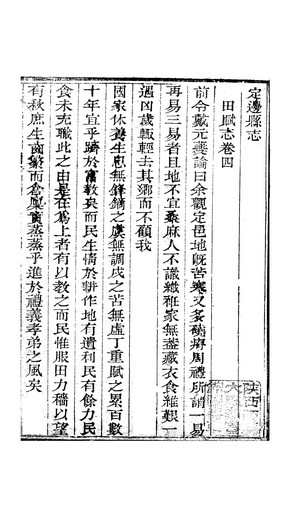 定邊縣志
田賦志卷四
前令戴元夔論曰余觀定邑地旣苦寒又多磽瘠周禮所謂一易
再易三易者且地不宜桑麻人不識織維家無蓋藏衣食維艱一
遇凶歲輒輕去其鄉而不顧我
國家休養生息無鋒鏑之虞無調戍之苦無虛丁重賦之累百數
十年宜乎躋於富教矣而民生惰於耕作地有遺利民有餘力民
食未充職此之由是在爲上者有以教之而民惟服田力穡以望
有秋庶生齒繁而倉廩實蒸蒸乎進於禮義孝弟之風矣